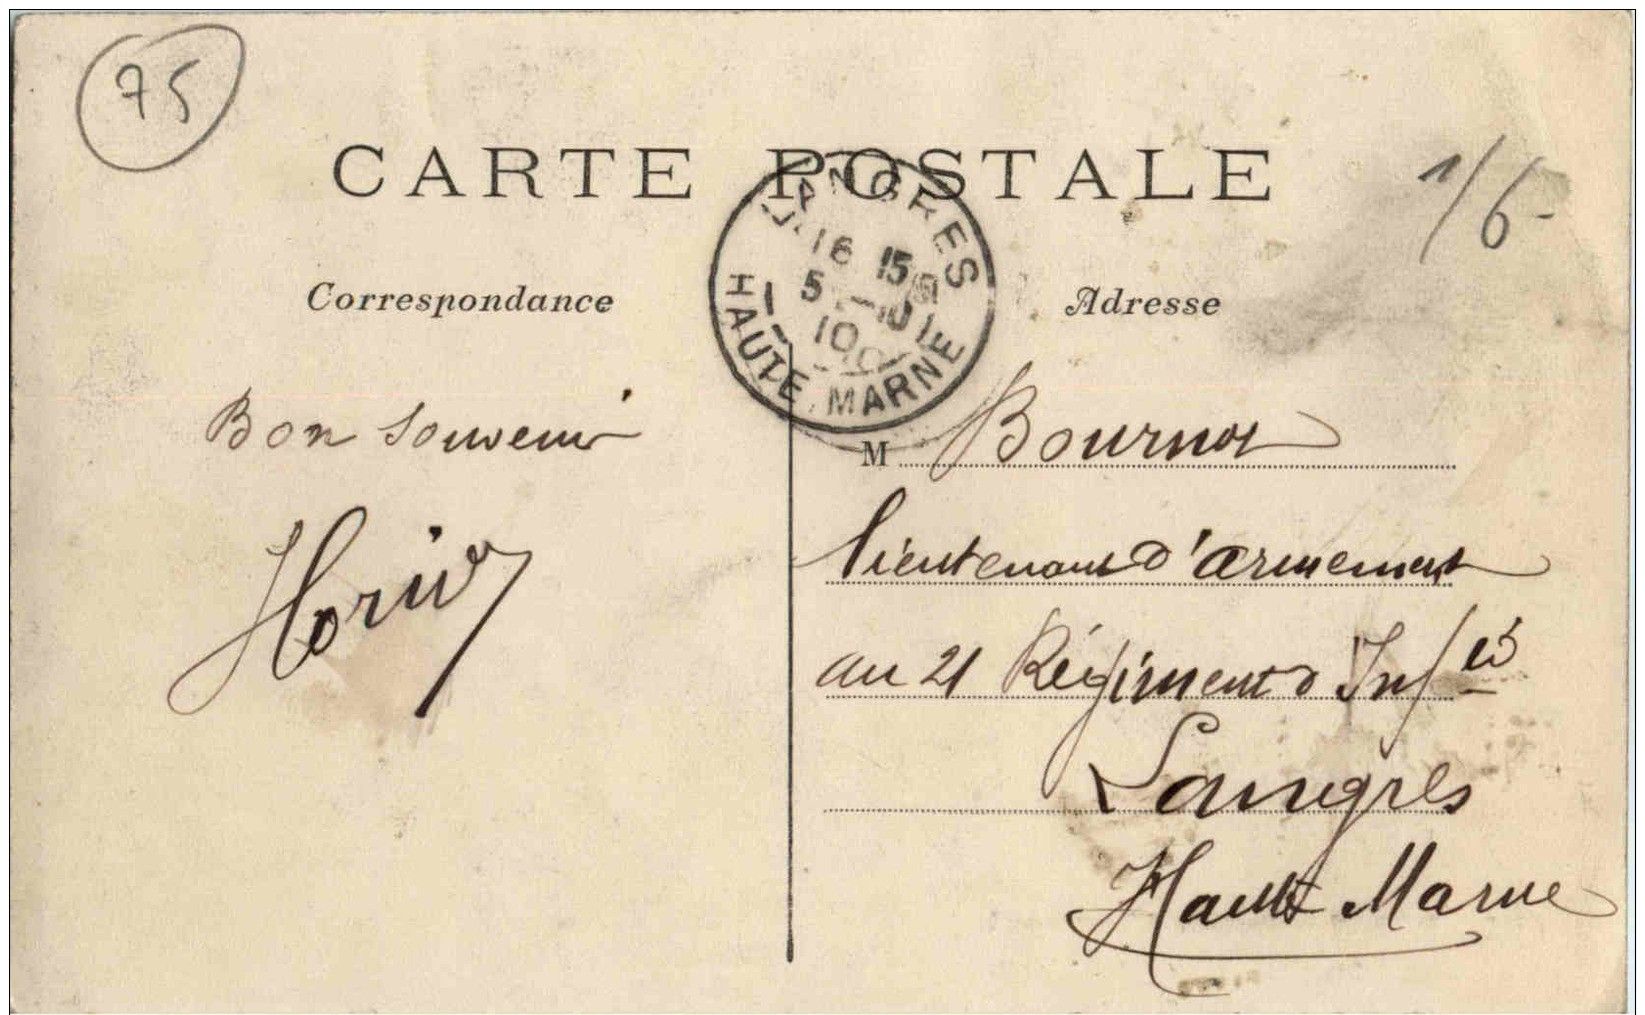 75
CARTE POSTALE
1/6-
LANGRES
16 15
5 -10
10
HAUTE MARNE
Correspondance
Adresse
Bon Souvenir
M Bournot
lieutenant d'armement
au 21 Régiment d Inf ie
Langres
Haute Marne